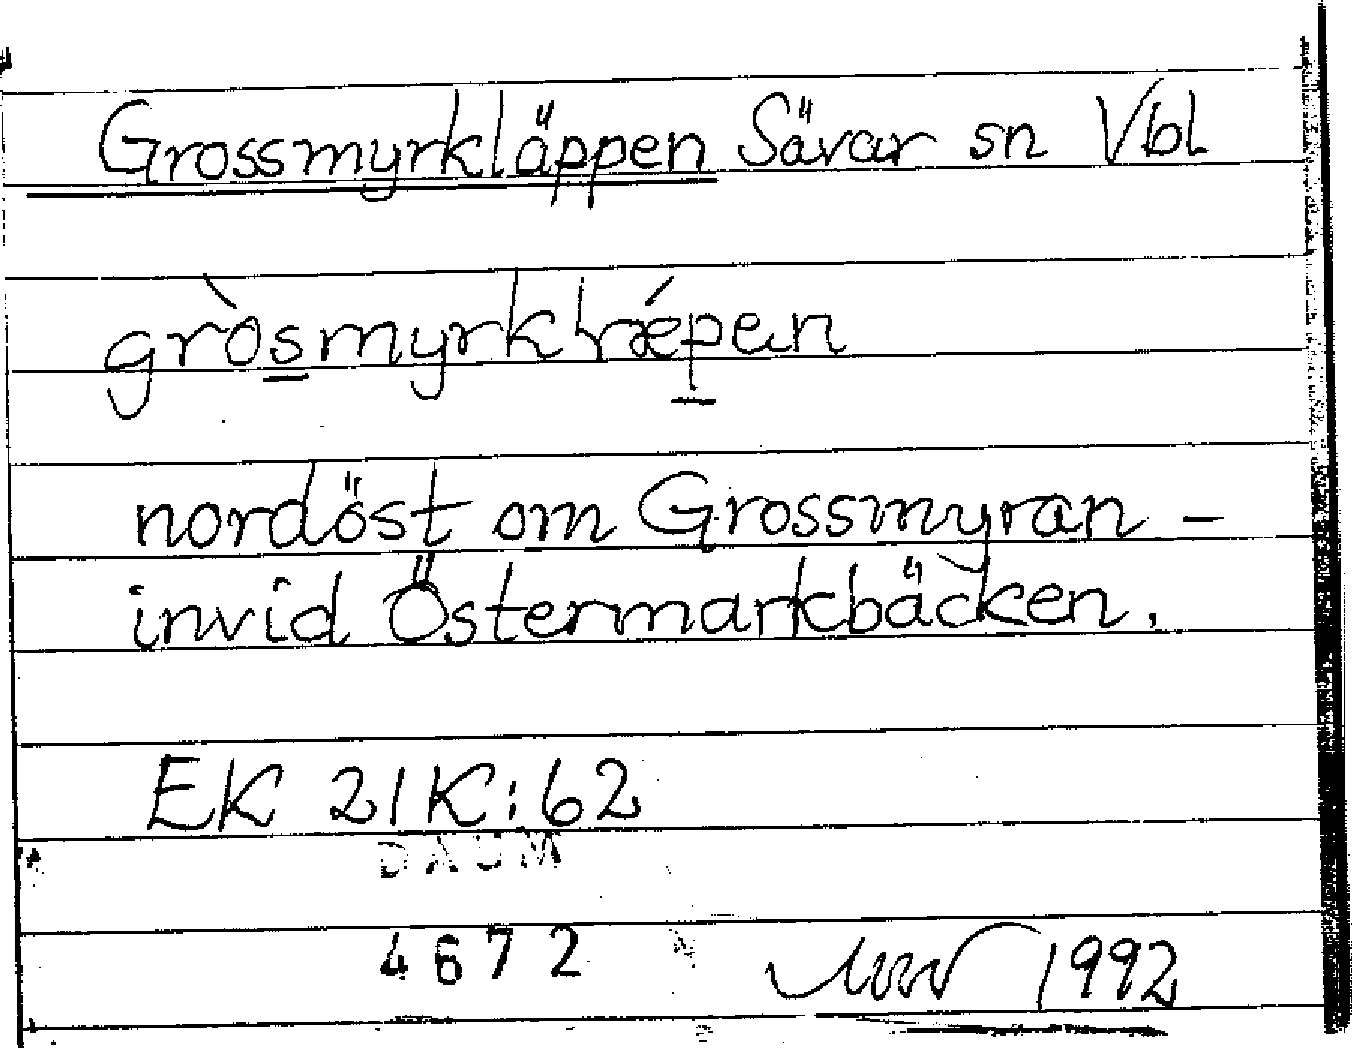 Grossmyrkläppen Sävar sn Vbl
nordöst om Grossmyran –
invid Östermarkbäcken.
EK 21K:62
DAUM
4672
1992